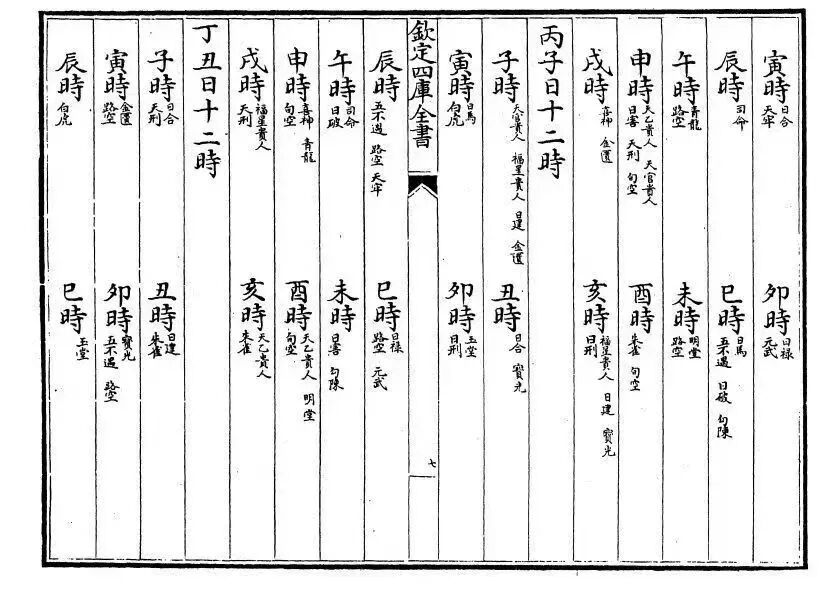 寅時 日合 天牢 卯時 日祿 元武
辰時 司命 巳時 日馬 五不遇 日破 勾陳
午時 青龍 路空 未時 明堂 路空
申時 天乙貴人 天官貴人 日害 天刑 旬空 酉時 朱雀 旬空
戌時 喜神 金匱 亥時 福星貴人 日建 寶光 日刑
丙子日十二時
子時 天官貴人 福星貴人 日建 金匱 丑時 日合 寶光
寅時 日馬 白虎 卯時 玉堂 日刑
欽定四庫全書 七
辰時 五不遇 路空 天牢 巳時 日祿 路空 元武
午時 司命 日破 未時 日害 勾陳
申時 喜神 青龍 旬空 酉時 天乙貴人 明堂 旬空
戌時 福星貴人 天刑 亥時 天乙貴人 朱雀
丁丑日十二時
子時 日合 天刑 丑時 日建 朱雀
寅時 金匱 路空 卯時 寶光 五不遇 路空
辰時 白虎 巳時 玉堂